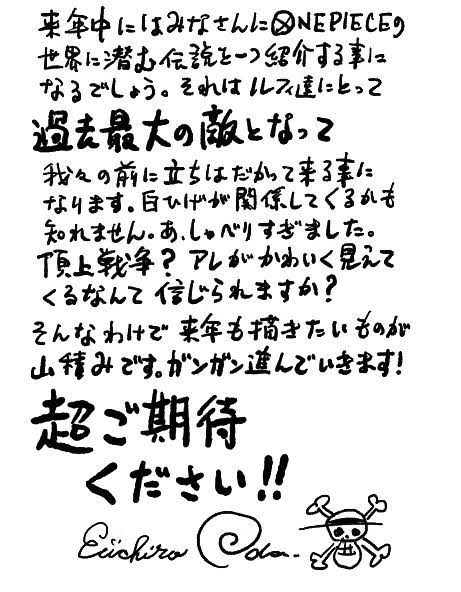 来年中にはみなさんにONEPIECEの
世界に潜む伝説を一つ紹介する事に
なるでしょう。それはルフィ達にとって
過去最大の敵となって
我々の前に立ちはだかって来る事に
なります。白ひげが関係してくるかも
知れません。あ、しゃべりすぎました。
頂上戦争？アレがかわいく見えて
くるなんて信じられますか？
そんなわけで来年も描きたいものが
山積みです。ガンガン進んでいきます！
超ご期待
ください!!
Eiichiro Oda.